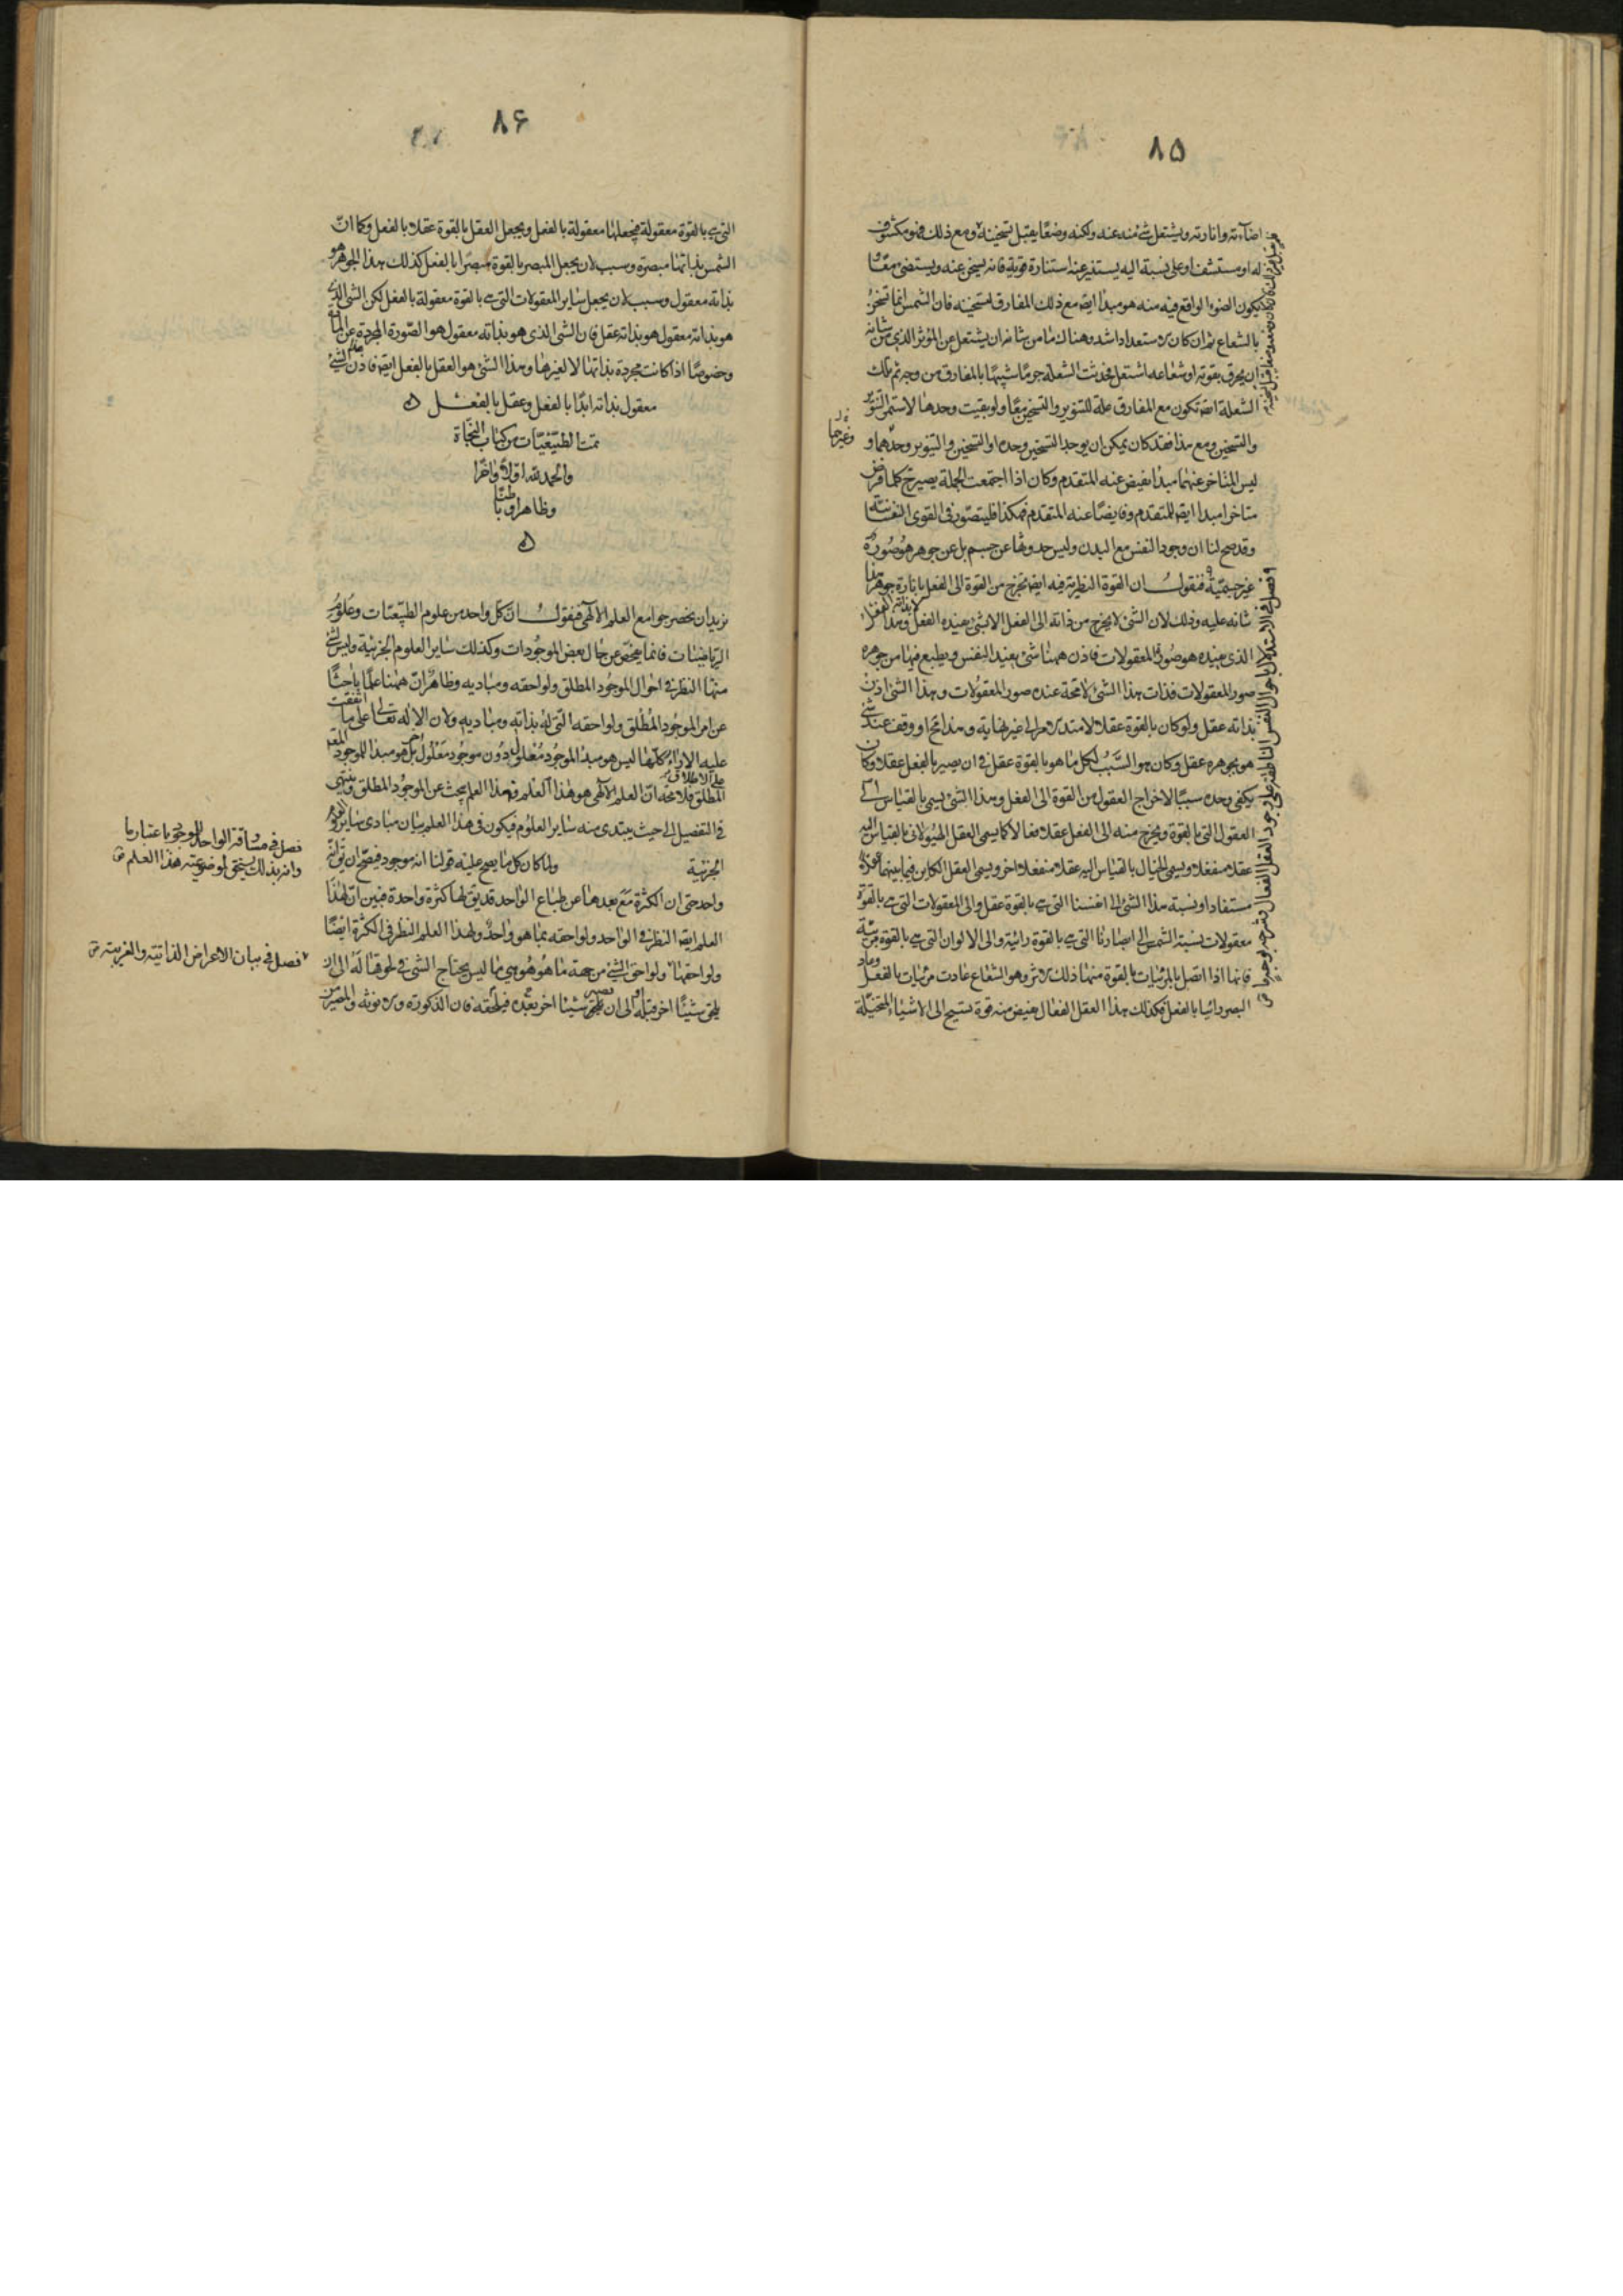 ٨٥
اضاءته وانارته ويشتعل شئ منه عنه ولكنه وضعا يقبل تسخينه ومع ذلك فهو مكشوف
له او مستشف او على نسبة اليه يستنير عنه استنارة قوية فانه يسخن عنه ويستضئ معا
فيكون الضوء الواقع فيه منه هو مبدأ ايضا مع ذلك المفارق لتسخينه فان الشمس انما تسخن
بالشعاع ثم ان كان الاستعداد اشد وهناك ما من شانه ان يشتعل عن المؤثر الذى من شانه
ان يحرق بقوته او شعاعه اشتعل فحدثت الشعلة جرما شبيها بالمفارق من وجه ثم تلك
الشعلة ايضا تكون مع المفارق علة للتنوير والتسخين معا ولو بقيت وحدها لاستمر التنوير
والتسخين ومع هذا فقد كان يمكن ان يوجد التسخين وحده او التسخين والتنوير وحدهما و
ليس المتاخر عنهما مبدأ يفيض عنه المتقدم وكان اذا اجتمعت الجملة يصير ح كلما فرض
متاخرا مبدا ايضا للمتقدم وفايضا عنه المتقدم فهكذا فليتصور فى القوى النفسانية
وقد صح لنا ان وجود النفس مع البدن وليس حدوثها عن جسم بل عن جوهر هو صورة
غير جسمية فنقول ان القوة النظرية فيه ايضا تخرج من القوة الى الفعل بانارة جوهر هذا
شانه عليه وذلك لان الشئ لا يخرج من ذاته الى الفعل الا بشئ يفيده الفعل وهذا الفعل
لا بذاته
الذى يفيده هو صورة المعقولات فاذن ههنا شئ يفيد النفس ويطبع فيها من جوهره
صور المعقولات فذات هذا الشئ لا محة عنده صور المعقولات وهذا الشئ اذن
بذاته عقل ولو كان بالقوة عقلا لامتد الامر الى غير نهاية وهذا مح او وقف عند شئ
هو بجوهره عقل وكان هو السبب لكل ما هو بالقوة عقل فى ان يصير بالفعل عقلا وكان
يكفى وحده سببا لاخراج العقول من القوة الى الفعل وهذا الشئ يسمى بالقياس الى
العقول التى بالقوة ويخرج منه الى الفعل عقلا فعالا كما يسمى العقل الهيولانى بالقياس اليه
عقلا منفعلا ويسمى الخيال بالقياس اليه عقلا منفعلا اخر ويسمى العقل الكاين فيما بينهما عقلا
مستفادا ونسبة هذا الشئ الى انفسنا التى هى بالقوة عقل والى المعقولات التى هى بالقوة
معقولات نسبة الشمس الى ابصارنا التى هى بالقوة رائية والى الالوان التى هى بالقوة مرئية
فانها اذا اتصل بالمرئيات بالقوة منها ذلك الاثر وهو الشعاع عادت مرئيات بالفعل وعاد
البصر رائيا بالفعل فكذلك هذا العقل الفعال يفيض منه قوة تسيح الى الاشياء المتخيلة
وغيرها
فصل فى الاستدلال باحوال النفس الناطقة على وجود العقل الفعال وشرحه بوجه ما
٨۶
التى هى بالقوة معقولة فيجعلها معقولة بالفعل ويجعل العقل بالقوة عقلا بالفعل وكما ان
الشمس بذاتها مبصرة وسبب لان يجعل المبصر بالقوة مبصرا بالفعل كذلك هذا الجوهر هو
بذاته معقول وسبب لان يجعل ساير المعقولات التى هى بالقوة معقولة بالفعل لكن الشئ الذى
هو بذاته معقول هو بذاته عقل فان الشئ الذى هو بذاته معقول هو الصورة المجردة عن المادة
وخصوصا اذا كانت مجردة بذاتها لا لغيرها وهذا الشئ هو العقل بالفعل ايضا فاذن هذا الشئ
معقول بذاته ابدا بالفعل وعقل بالفعل
تمت الطبيعيات من كتاب النجاة
والحمد لله اولا واخرا
وظاهرا وباطنا
نريد ان نحصر جوامع العلم الالهى فنقول ان كل واحد من علوم الطبيعيات وعلوم
الرياضيات فانما يفحص عن حال بعض الموجودات وكذلك ساير العلوم الجزئية وليس لشئ
منها النظر فى احوال الموجود المطلق ولواحقه ومباديه وظاهر ان ههنا علما باحثا
عن امر الموجود المطلق ولواحقه التى له بذاته ومباديه ولان الاله تعالى على ما اتفقت
عليه الاراء كلها ليس هو مبدأ لموجود معلول دون موجود معلول اخر بل هو مبدأ للموجود المعلول
على الاطلاق
المطلق فلا محة ان العلم الالهى هو هذا العلم فهذا العلم يبحث عن الموجود المطلق وينتهى
فى التفصيل الى حيث يبتدى منه ساير العلوم فيكون فى هذا العلم بيان مبادى ساير العلوم
الجزئية ولما كان كل ما يصح عليه قولنا انه موجود فيصح ان يقال له
واحد حتى ان الكثرة مع بعدها عن طباع الواحد قد يق لها كثرة واحدة فبين ان لهذا
العلم ايضا النظر فى الواحد ولواحقه بما هو واحد ولهذا العلم النظر فى الكثرة ايضا
ولواحقها ولواحق الشئ من جهة ما هو هو هى ما ليس يحتاج الشئ فى لحوقها له الى ان
يلحق شيئا اخر قبله او الى ان يصير شيئا اخر بعده فيلحقه فان الذكورة والانوثة والمصير من
فصل فى مساوقة الواحد للوجود باعتبار ما
وانه بذلك يستحق لموضوعية هذا العلم
فصل فى بيان الاعراض الذاتية والغريبة